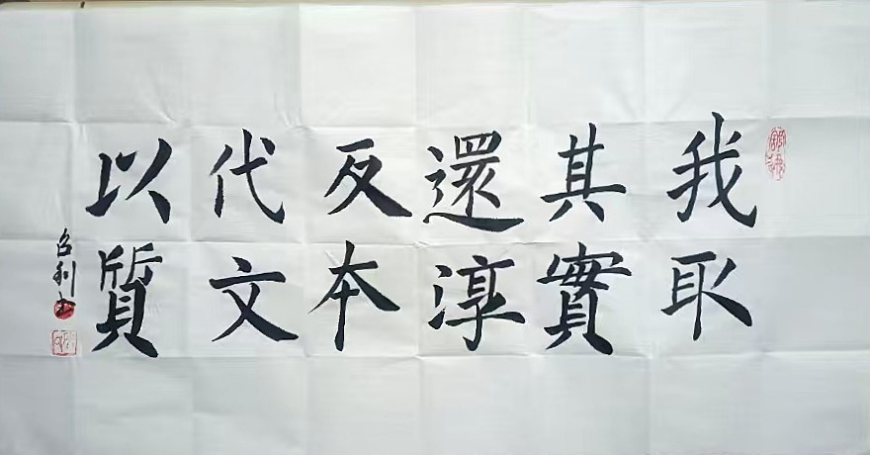 我取
其實
還淳
反本
代文
以質
召利书